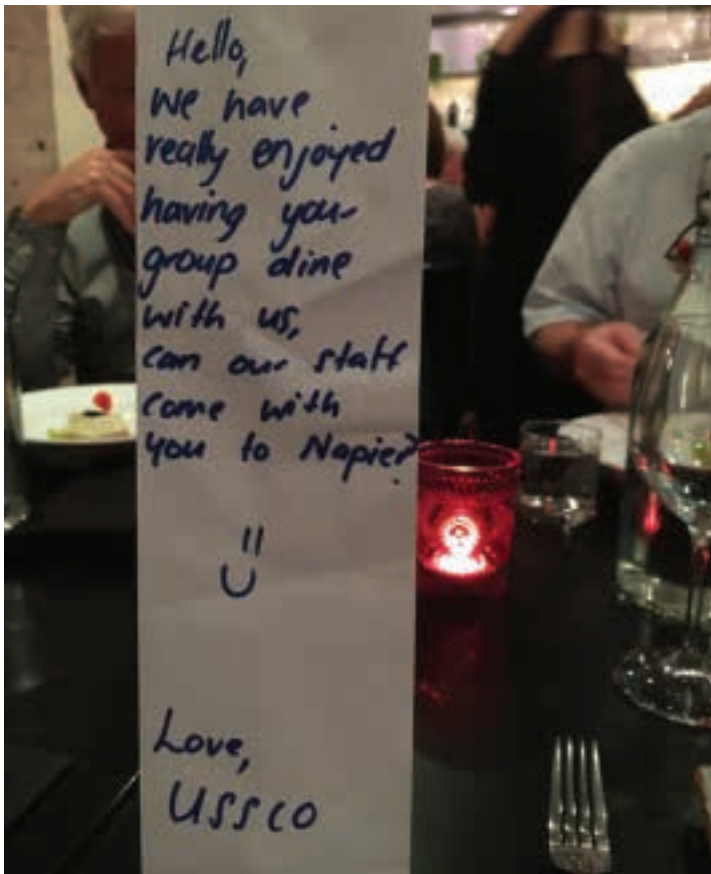 Hello,
we have
really enjoyed
having your
group dine
with us,
can our staff
come with
you to Napier?
Love,
USSCO